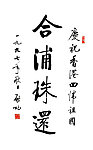 慶祝香港回歸祖國
合浦珠還
一九九七年夏日 啟功